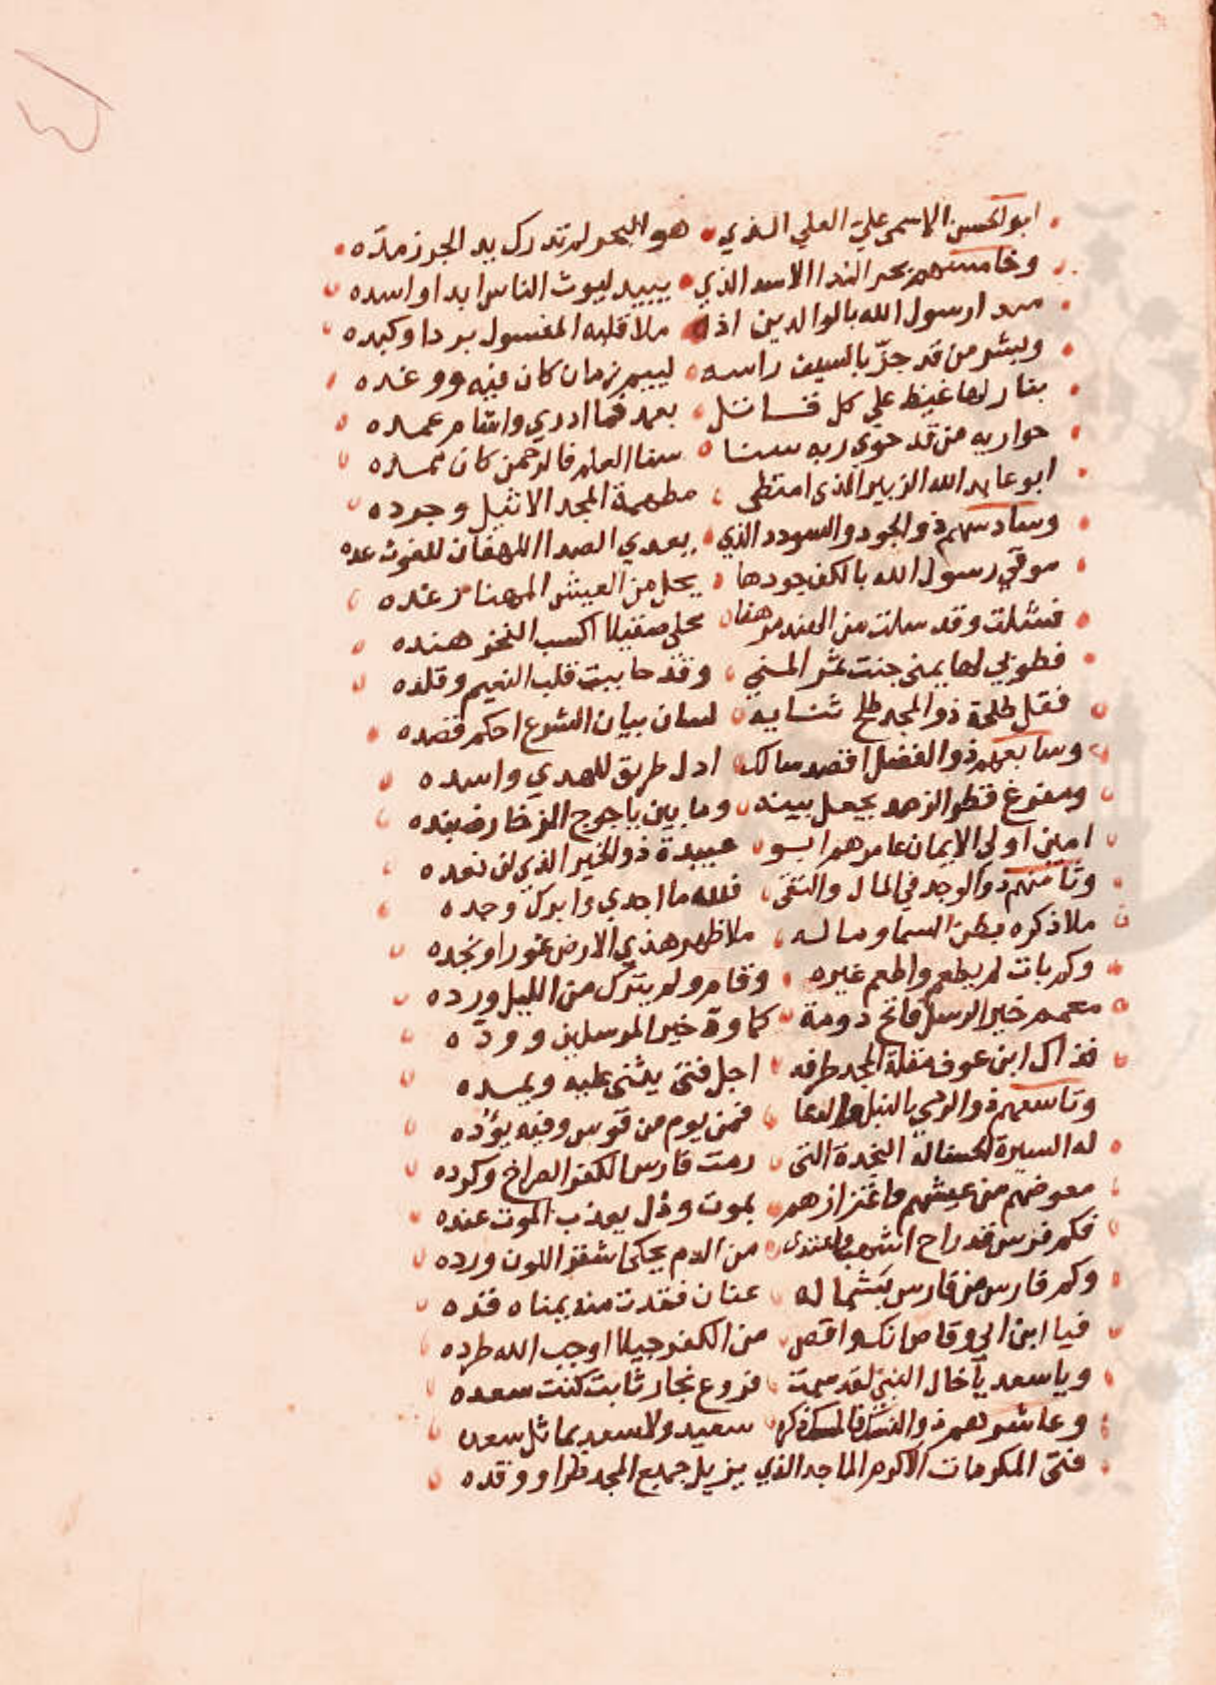 ابو الحسن الاسمى علي العلي الذي هو البحر لم تدرك يد الجزر مدّه
وخامسهم بحر الندا الاسد الذي يبيد ليوث الناس ابدا واسده
رسول الله بالوالدين اذ ملا قلبه المغسول بردا وكبده
وبشر من قد جزّ بالسيف راسه زمان كان فيه ووغده
بنار لها غيظ علي كل قاتل بعمد فما ادري واقام عمده
حواريه من قد حوي ربه سنا سنا العلم فالرحمن كان ممده
ابو عابد الله الزبير الذي امتطى مطهمة المجد الاثيل وجرده
وسادسهم ذو الجود والسودد الذي الصدا اللهفان للغوث عده
موقي رسول الله بالكف جودها يحل من العيش المهنا رغده
فشلت وقد سلت من الهند مرهفا محلى صقيلا اكسب الفخر هنده
فطوبي لها يمنى جنت ثمر المني وقد قلب النعيم وقلده
فقل طلحة ذو المجد طلح ثنايه لسان بيان الشرع احكم قصده
وسابعهم ذو الفضل اقصد سالك ادل طريق للهدي واسده
ومفرغ قطر الزهد يجعل بينه وما بين ياجوج الزخارف بنده
امين اولي الايمان عامرهم ابو عبيدة ذو الخير الذي لن نعده
وثامنهم ذو الوجد في المال والتقى فلله ما اجدي وابرك وجده
ملا ذكره بطن السما وماله ملا ظهر هذي الارض غورا ونجده
وكم بات لم يطعم واطعم غيره وقام ولم يترك من الليل ورده
معمم خير الرسل فاتح دومة خير المرسلين وودّه
فذاك ابن عوف مقلة المجد طرفه اجل فتى يثنى عليه ويمده
وتاسعهم ذو الرمي بالنبل والدعا فمن يوم من قوس وفيه يؤده
له السيرة الحسنا له النجدة التى رمت فارس الكفر الصراخ وكرده
معوضهم من عيشهم واغتزازهم بموت وذل يعذب الموت عنده
فكم فرس قد راح اشهب واغتدى من الدم يحكى اشقر اللون ورده
وكم فارس من فارس بشماله عنان فقدت منه يمناه قده
فيا ابن ابي وقاص من الكفر جيلا اوجب الله طرده
ويا سعد يا خال النبي لقد سمت فروع نجار ثابت كنت سعده
وعاشرهم ذو النسك سعيد ولا سعيد يماثل سعده
فتى المكرمات الاكرم الماجد الذي يزيل جميع المجد طرا ووقده